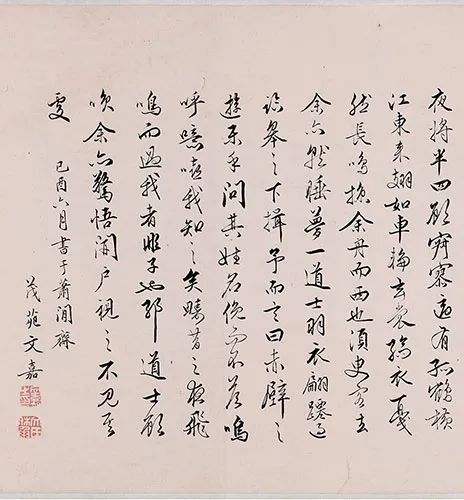 夜將半四顧寂寥適有孤鶴橫
江東來翅如車輪玄裳縞衣戛
然長鳴掠余舟而西也須臾客去
余亦就睡夢一道士羽衣翩躚過
臨皋之下揖予而言曰赤壁之
遊樂乎問其姓名俛而不答嗚
呼噫嘻我知之矣疇昔之夜飛
鳴而過我者非子也耶道士顧
咲余亦驚悟開戶視之不見其
處
己酉六月書于蕭閒齋
茂苑文嘉